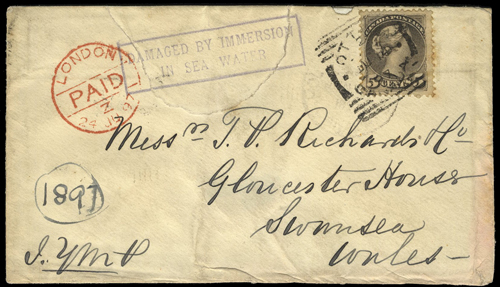 LONDON
PAID
DAMAGED BY IMMERSION
IN SEA WATER
CANADA POSTAGE
5 CENTS 5
Messrs T. P. Richards & Co
Gloucester House
Swansea
Wales
1891